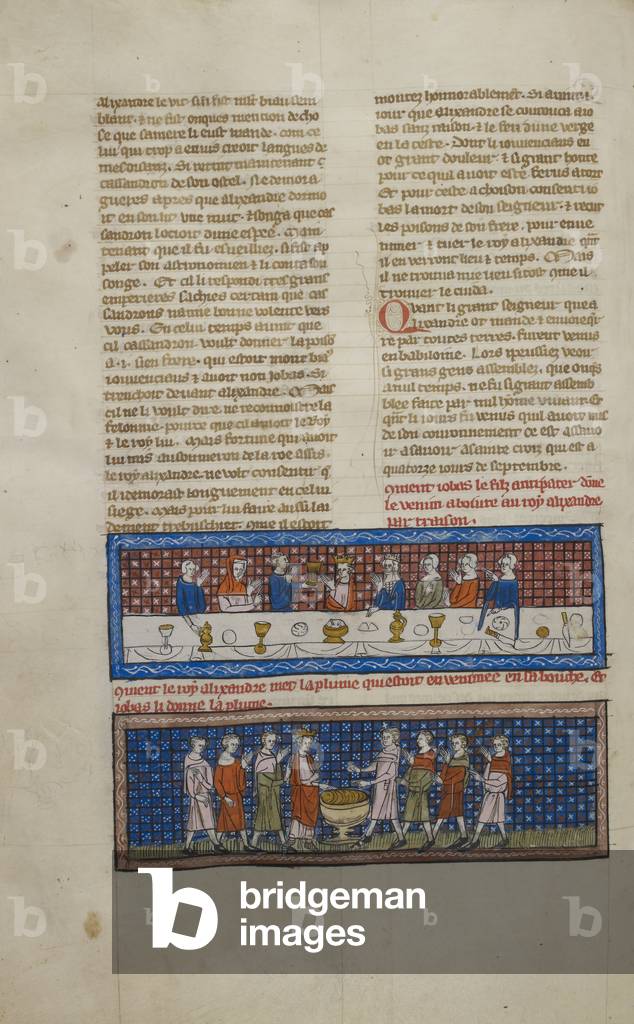 alixandre le vit si li fist mlt biau sem
blant. ⁊ ne fist onques mencion de cho
se que sa mere li eust mande. com ce
lui qui trop a envis creoit langues de
mesdisanz. Si retint maintenant
cassandron de son ostel. Ne demora
gueres apres que alixandre dormo
it en son lit une nuit. ⁊ songa que cas
sandron locioit dune espee. Main
tenant que il fu esueilliez. si fist ap
peler son astronomien ⁊ li conta son
songe. Et cil li respondi tres grans
emperieres saches certain que cas
sandrons na mie bonne volente vers
vous. En celui temps avint que
cil cassandron voult donner la poiso
a .i. sien frere. qui estoit mont biau
iouvenciaus ⁊ avoit non iobas. Si
trenchoit devant alixandre. Mais
cil ne li voult dire ne reconnoistre la
felonnie. pource que cil amoit le roy
⁊ le roy lui. Mais fortune qui avoit
lui mis au sommeron de la roe assis.
le roy alixandre. ne volt consentir q
il i demorast longuement en celui
siege. Mais pour lui faire aussi lai
dement trebuschier. que il estoit
montez honnorablement. Si avint .i.
iour que alixandre se courouca a io
bas sanz raison. ⁊ le feri dune verge
en la teste. Dont li iouvenciaus en
ot grant douleur. ⁊ si grant honte
pour ce quil avoit este ferus a tort
Et pour ceste achoison consenti io
bas la mort de son seigneur. ⁊ recut
les poisons de son frere. pour enve
nimer ⁊ tuer le roy alixandre quant
il en verront lieu ⁊ temps. Mais
il ne trouva mie lieu si tost que il
trouver le cuida.
Quant li grant seigneur que a
lixandre ot mande ⁊ envoie qr
re par toutes terres. furent venus
en babiloine. Lors i peussiez veoir
si grans gens assemblez. que onqs
a nul temps. ne fu si grant assemb
blee faite par nul home vivant. Et
quant li iours fu venus quil avoit mis
de son couronnement ce est assavo
ir a savoir a sainte croiz qui est a
quatorze iours de septembre.
Coment iobas le filz antipater donne
le venin a boivre au roy alixandre
par traison.
Coment le roy alixandre met la plume qui estoit envenimee en sa bouche. Et
iobas li donne la plume.
b bridgeman
images